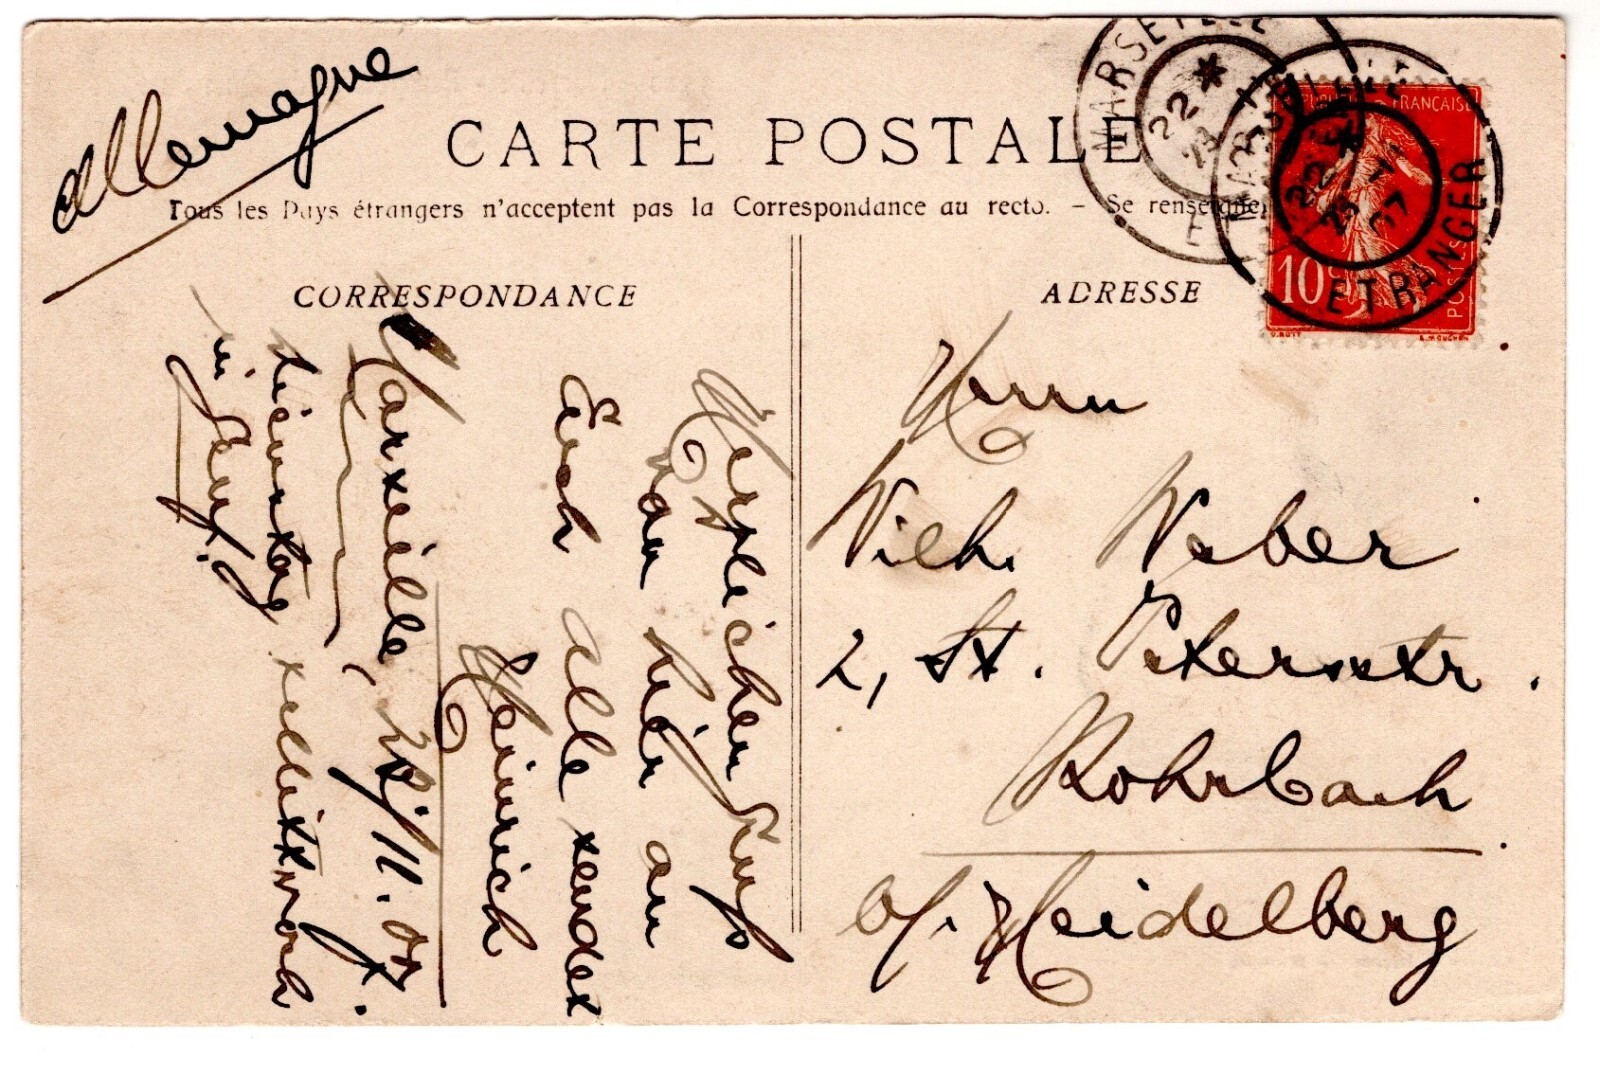 Allemagne
CARTE POSTALE
Tous les Pays étrangers n'acceptent pas la Correspondance au recto. – Se renseigner
CORRESPONDANCE
ADRESSE
MARSEILLE
22 *
ETRANGER
22 *
07
FRANÇAISE
10c
POSTES
Herrn
Wilh. Weber
2, St. Petersstr.
Rohrbach
a/. Heidelberg
Herzlichen Gruß
von hier an
Euch alle sendet
Heinrich
Marseille, 11. 07
Dienstag
in Genf.